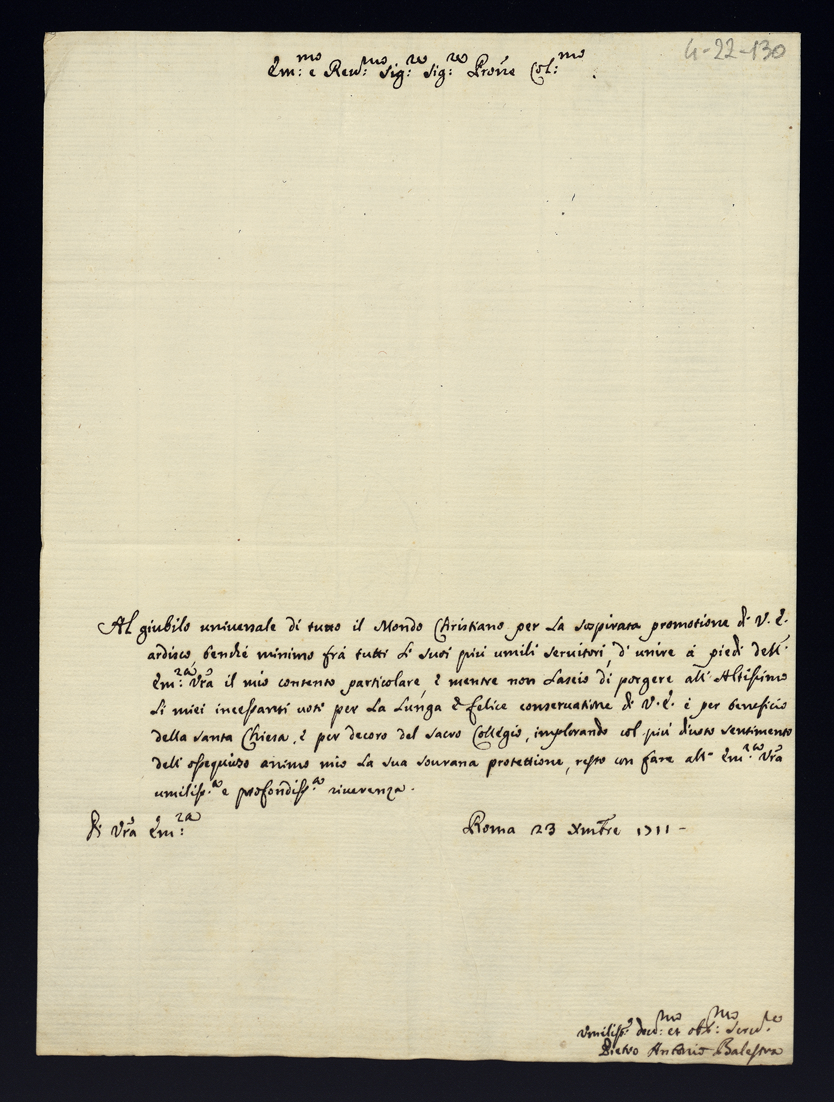 4-22-130
Em:mo e Reu:mo Sig:re Sig:re Prone Col:mo
Al giubilo uniuersale di tutto il Mondo Christiano per la sospirata promotione di V. E.
ardisco, benche minimo frà tutti li suoi più umili seruitori, d'unire à piedi dell'
Em:za Vra il mio contento particolare, e mentre non lascio di porgere all'Altissimo
li miei incessanti uoti per la lunga e felice conseruatione di V. E. e per beneficio
della Santa Chiesa, e per decoro del Sacro Collegio, implorando col più diuoto sentimento
dell'ossequioso animo mio la sua sourana protettione, resto con fare all' Em:za Vra
umiliss.a e profondiss.a riuerenza.
Di Vra Em:za
Roma 23 Xmbre 1711 -
Vmiliss.o deu:mo et obl:mo Seru.re
Pietro Antonio Balestra